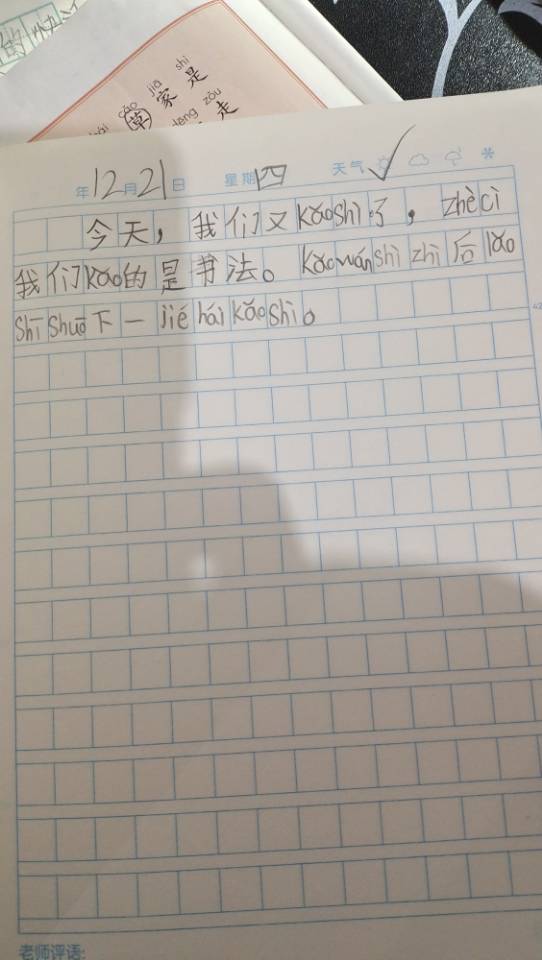 的
cǎo jiā shì
草家是
zǒu
走
年12月21日 星期四 天气
今天，我们又kǎoshì了，zhècì
我们kǎo的是书法。kǎowánshì zhī后lǎo
shī shuō下一jié hái kǎoshì。
老师评语: